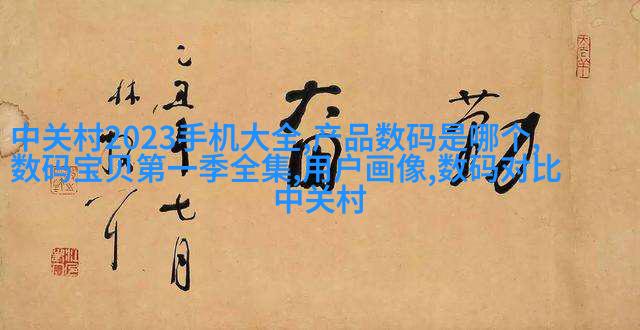 中关村2023手机大全,产品数码是哪个,
数码宝贝第一季全集,用户画像,数码对比
中关村
勤奮
乙丑年七月
林